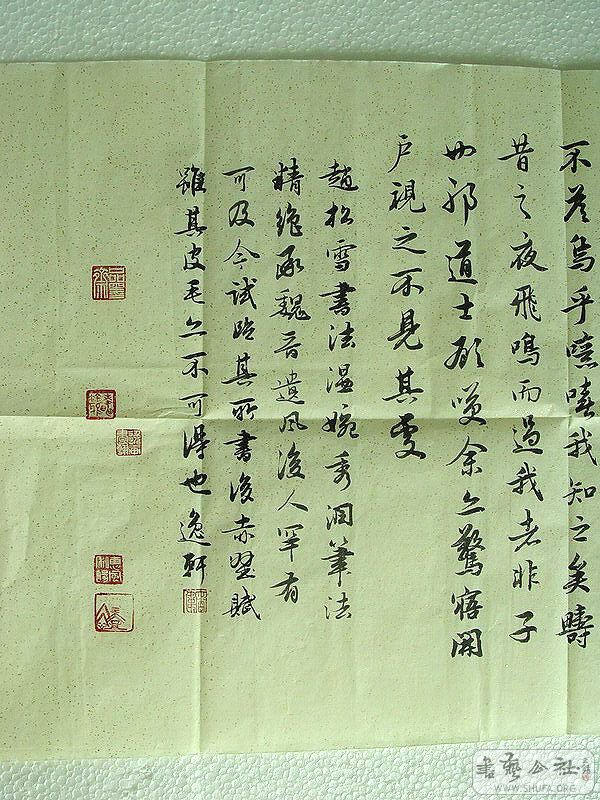 不答烏乎噫嘻我知之矣疇
昔之夜飛鳴而過我者非子
也耶道士顧笑余亦驚寤開
戶視之不見其處
趙松雪書法溫婉秀潤筆法
精絕承魏晉遺風後人罕有
可及今試臨其所書後赤壁賦
雖其皮毛亦不可得也逸軒
書藝公社
WWW.SHUFA.ORG